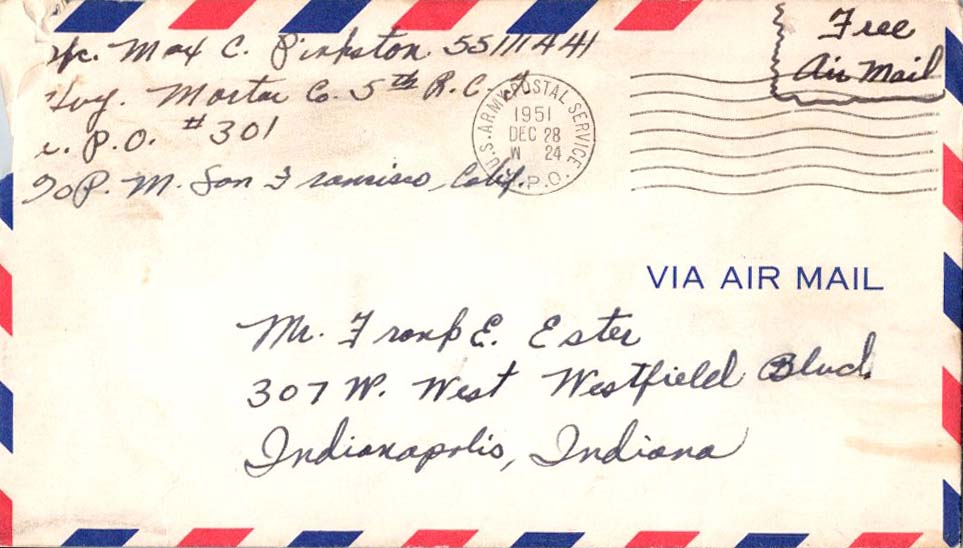 Max C. Pinkston 55111441
Hvy. Mortar Co. 5th R.C.T.
P.O. #301
P.M. San Francisco, Calif.
U.S. ARMY POSTAL SERVICE
1951
DEC 28
W 24
P.O.
Free
Air Mail
VIA AIR MAIL
Mr. Frank E. Ester
307 W. West Westfield Blvd.
Indianapolis, Indiana